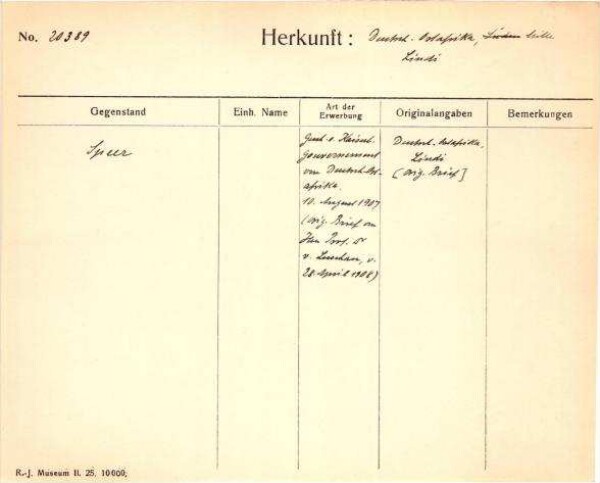 No. 20389
Herkunft: Deutsch-Ostafrika,
Lindi
Gegenstand
Einh. Name
Art der
Erwerbung
Originalangaben
Bemerkungen
Speer
Gesch. v. Kaiserl.
Gouvernement
von Deutsch-Ost-
afrika.
10. August 1907
(Orig. Brief an
Herrn Prof. Dr
v. Luschan, v.
28 April 1908)
Deutsch-Ostafrika,
Lindi
(Orig. Brief]
R.-J. Museum II. 25, 10000;